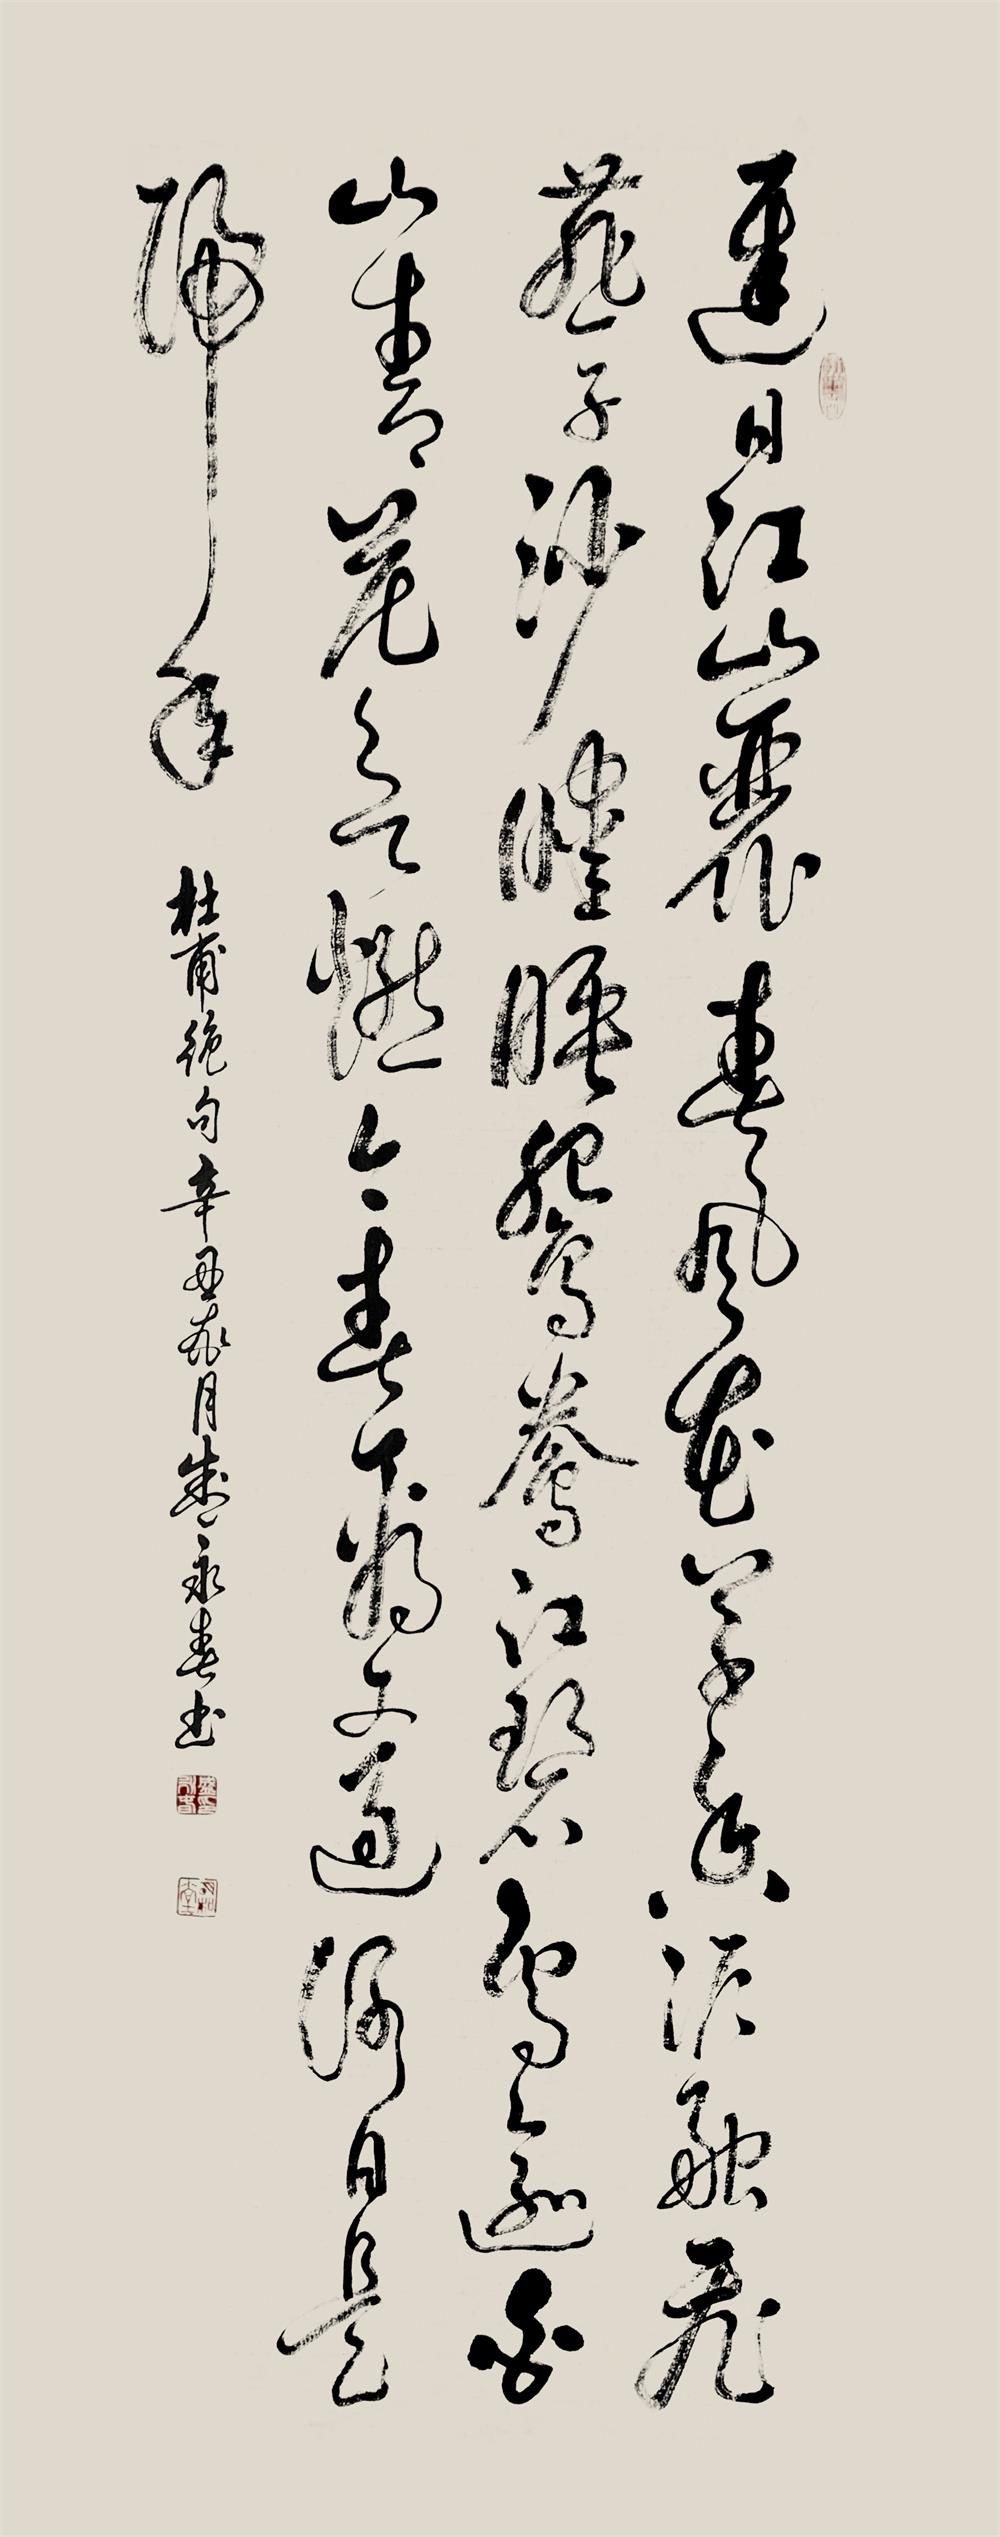 遲日江山麗春風花草香泥融飛
燕子沙暖睡鴛鴦江碧鳥逾白
山青花欲燃今春看又過何日是
歸年
杜甫絶句辛丑秋月盛永春书